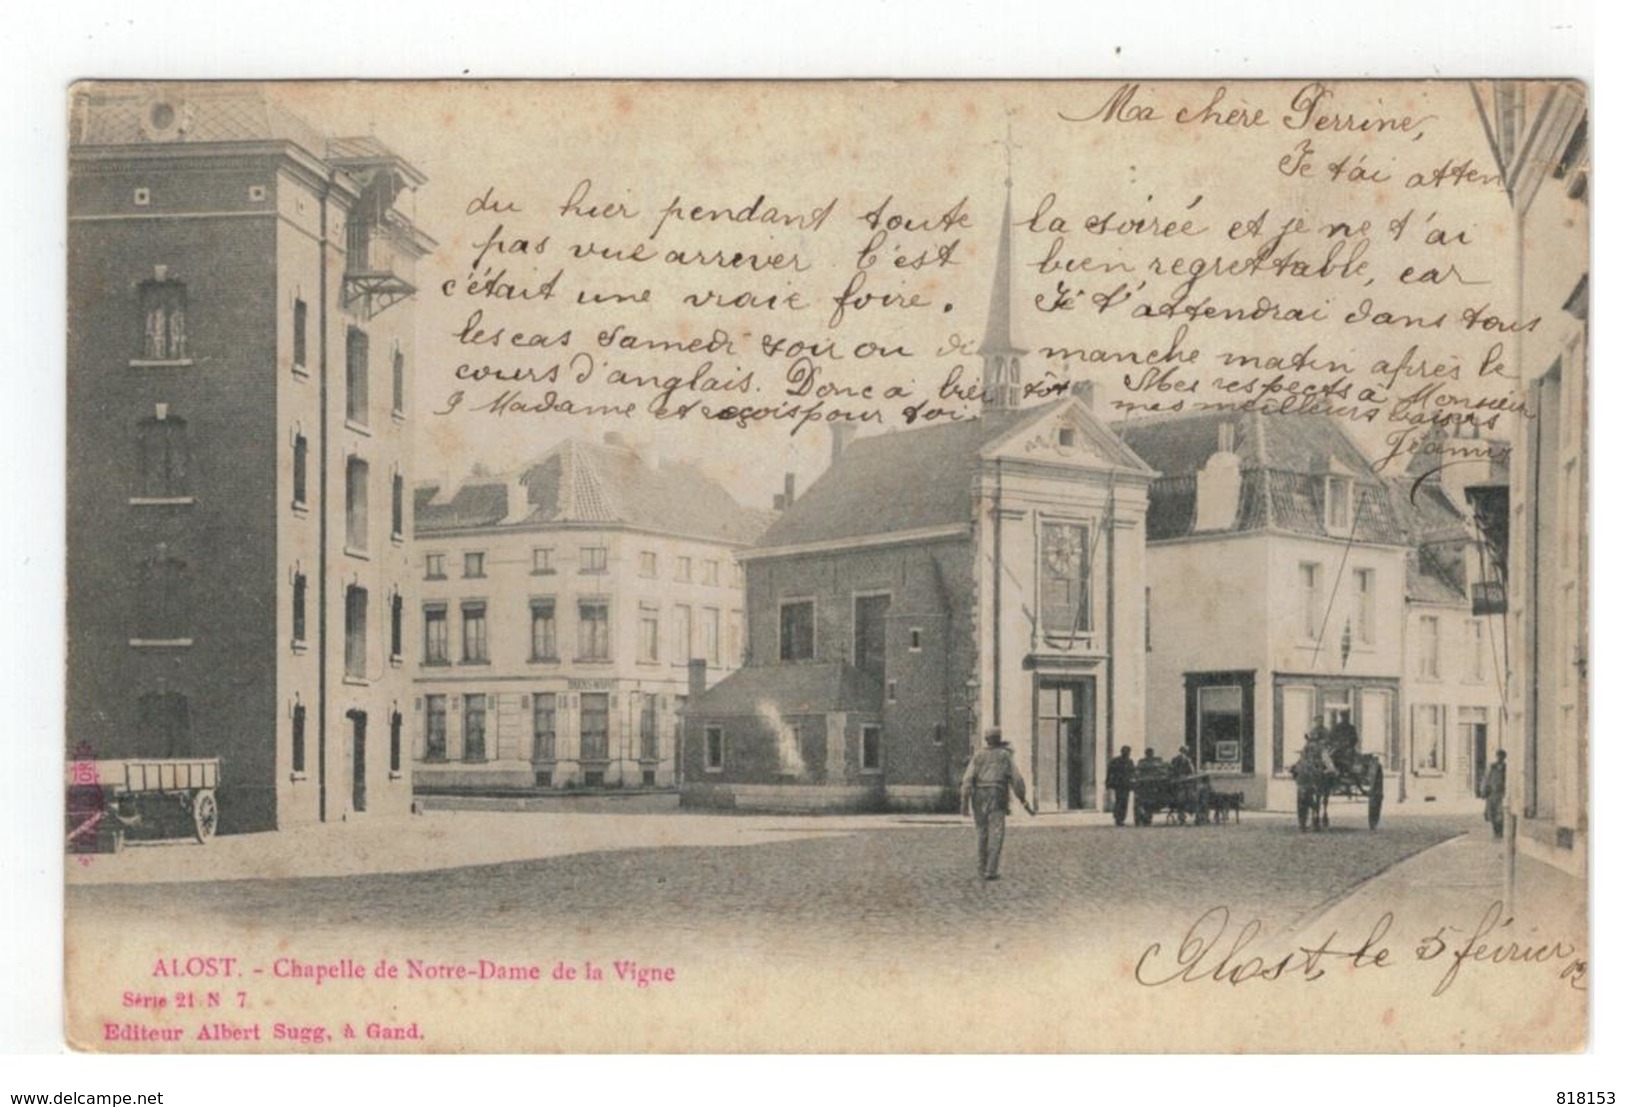 Ma chère Perrine,
Je t'ai atten
du hier pendant toute la soirée et je ne t'ai
pas vue arriver. C'est bien regrettable, car
c'était une vraie foire. Je t'attendrai dans tous
les cas samedi soir ou dimanche matin après le
cours d'anglais. Donc à bientôt Mes respects à Monsieur
& Madame et reçois pour toi mes meilleurs baisers
Alost, le 5 février
ALOST. - Chapelle de Notre-Dame de la Vigne
Série 21 N 7
Editeur Albert Sugg, à Gand.
www.delcampe.net
your phlox
818153